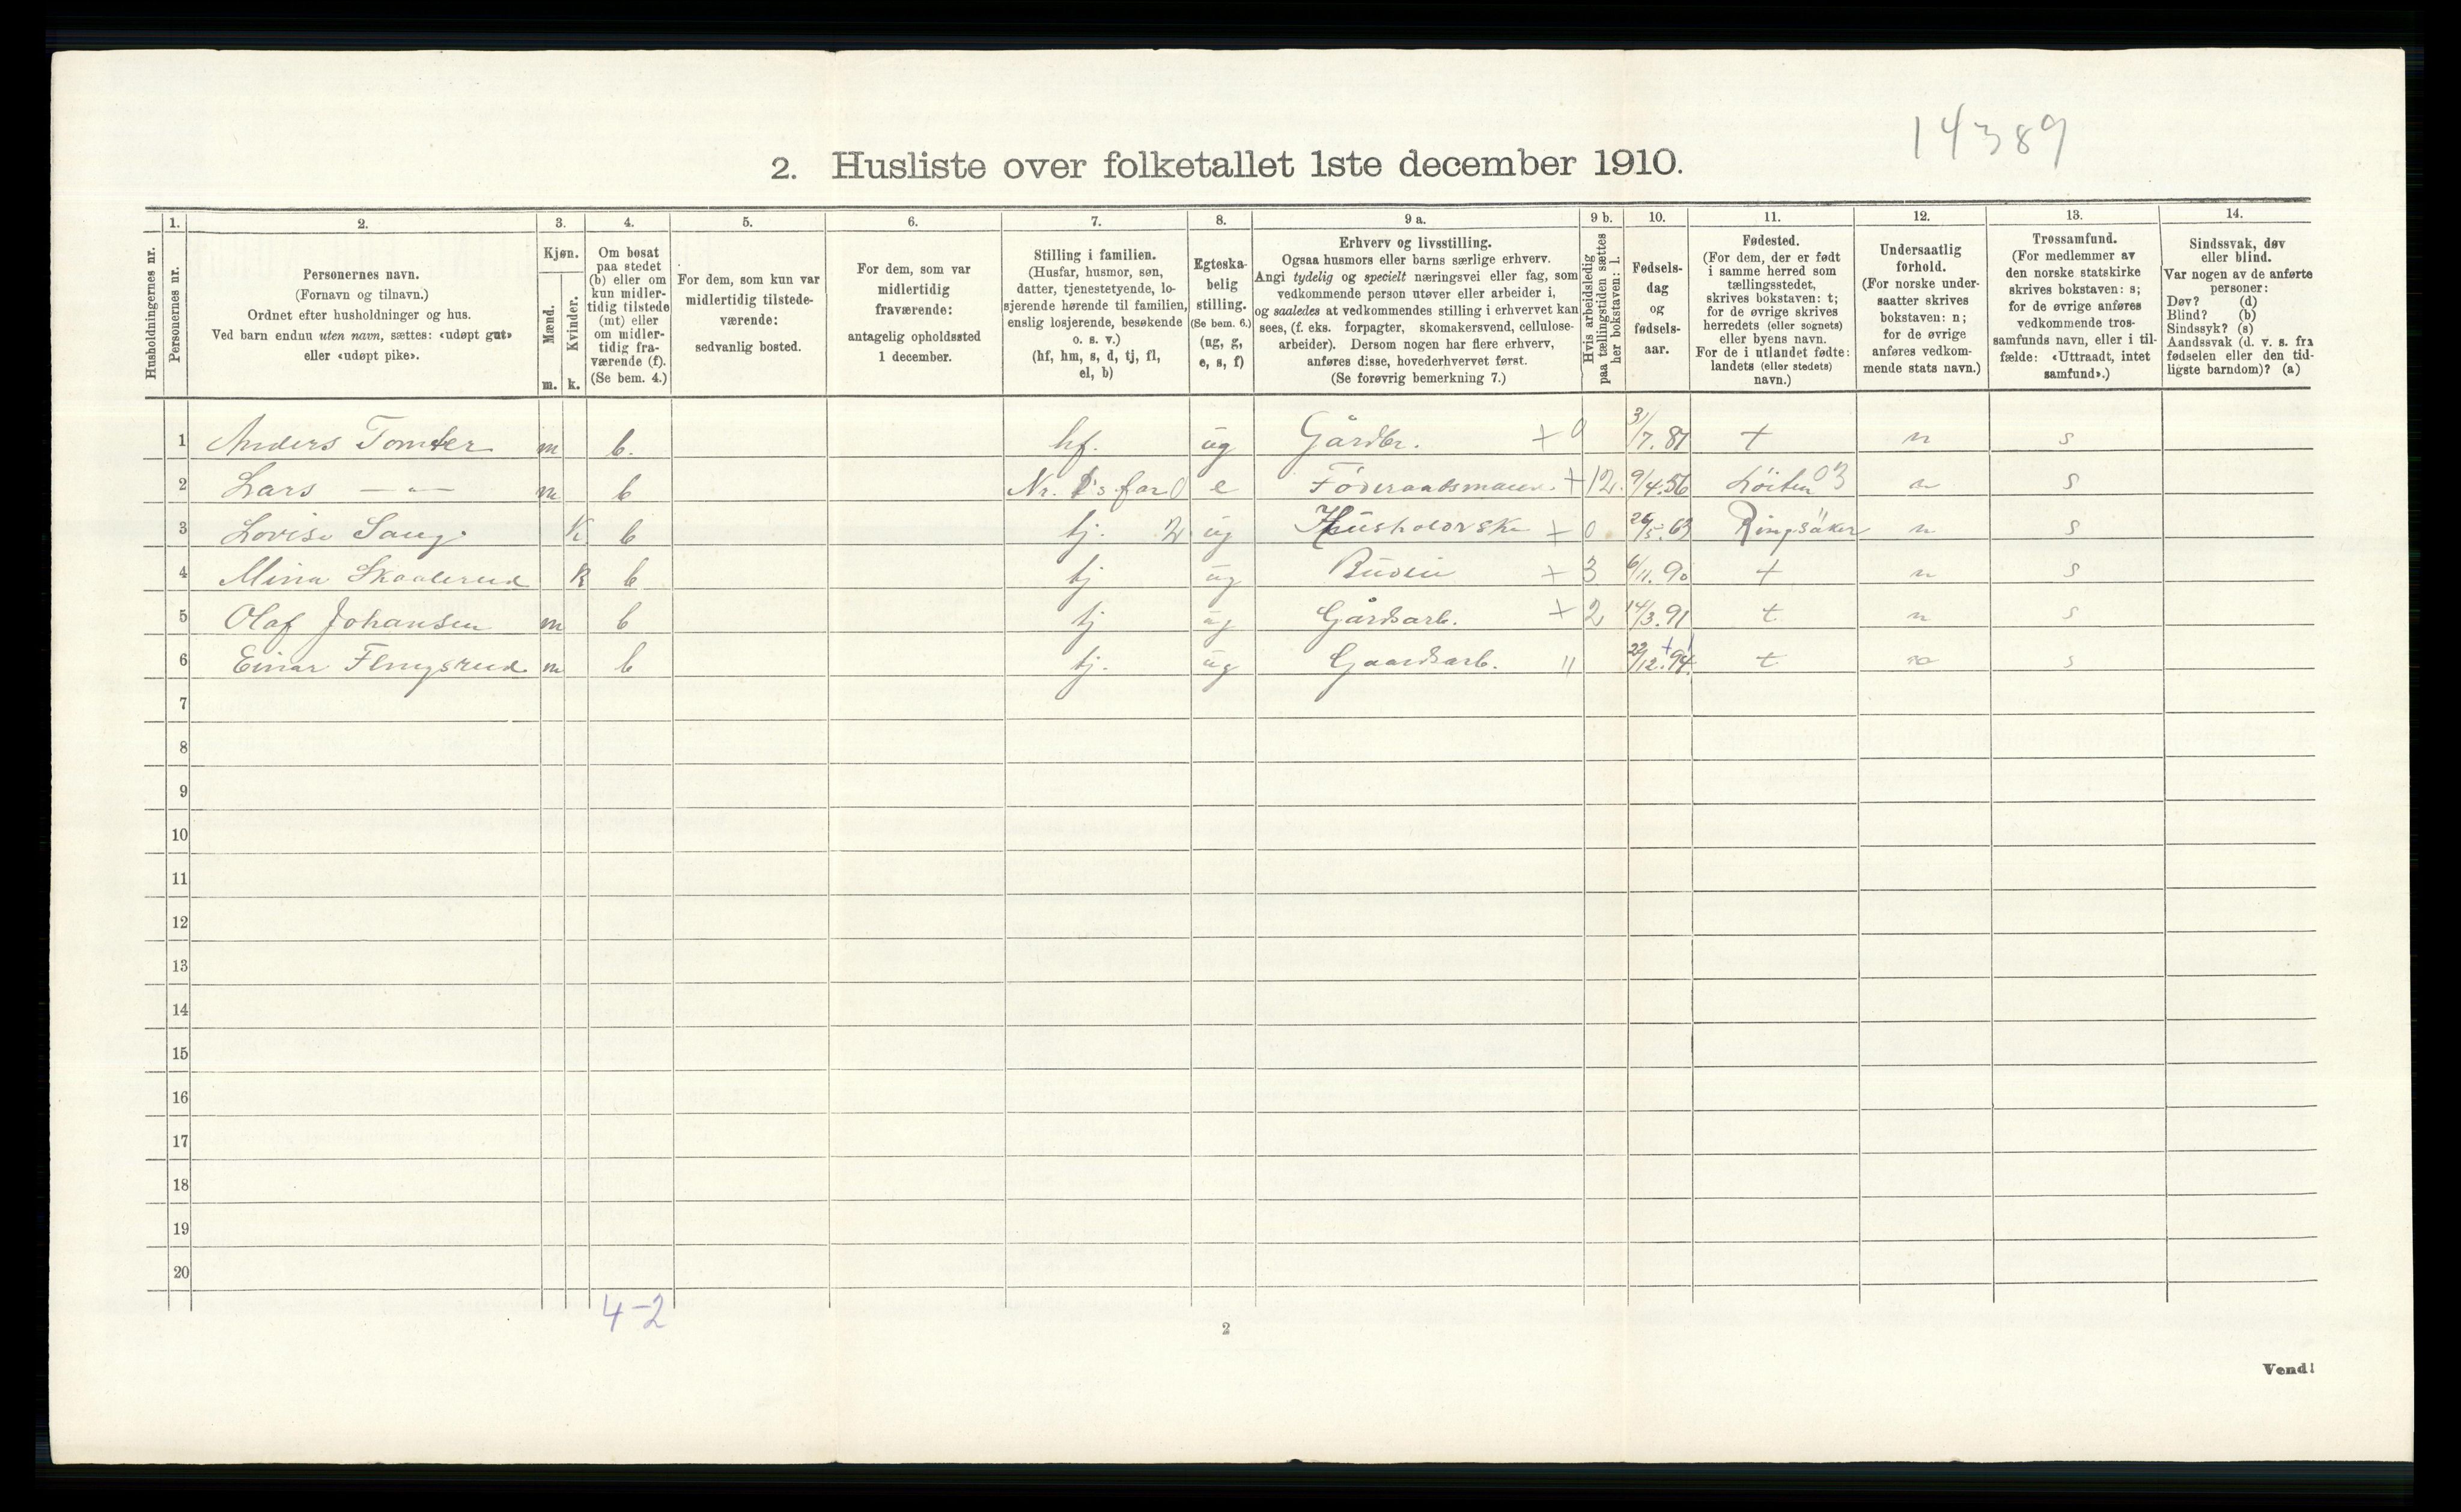 14389
2. Husliste over folketallet 1ste december 1910.
Husholdningernes nr.
1. Personernes nr.
2. Personernes navn.
(Fornavn og tilnavn.)
Ordnet efter husholdninger og hus.
Ved barn endnu uten navn, sættes: «udøpt gut»
eller «udøpt pike».
3. Kjøn.
Mænd. m.
Kvinder. k.
4. Om bosat
paa stedet
(b) eller om
kun midler-
tidig tilstede
(mt) eller
om midler-
tidig fra-
værende (f).
(Se bem. 4.)
5. For dem, som kun var
midlertidig tilstede-
værende:
sedvanlig bosted.
6. For dem, som var
midlertidig
fraværende:
antagelig opholdssted
1 december.
7. Stilling i familien.
(Husfar, husmor, søn,
datter, tjenestetyende, lo-
sjerende hørende til familien,
enslig losjerende, besøkende
o. s. v.)
(hf, hm, s, d, tj, fl,
el, b)
8. Egteska-
belig
stilling.
(Se bem. 6.)
(ug, g,
e, s, f)
9 a. Erhverv og livsstilling.
Ogsaa husmors eller barns særlige erhverv.
Angi tydelig og specielt næringsvei eller fag, som
vedkommende person utøver eller arbeider i,
og saaledes at vedkommendes stilling i erhvervet kan
sees, (f. eks. forpagter, skomakersvend, cellulose-
arbeider). Dersom nogen har flere erhverv,
anføres disse, hovederhvervet først.
(Se forøvrig bemerkning 7.)
9 b. Hvis arbeidsledig
paa tællingstiden sættes
her bokstaven: l.
10. Fødsels-
dag
og
fødsels-
aar.
11. Fødested.
(For dem, der er født
i samme herred som
tællingsstedet,
skrives bokstaven: t;
for de øvrige skrives
herredets (eller sognets)
eller byens navn.
For de i utlandet fødte:
landets (eller stedets)
navn.)
12. Undersaatlig
forhold.
(For norske under-
saatter skrives
bokstaven: n;
for de øvrige
anføres vedkom-
mende stats navn.)
13. Trossamfund.
(For medlemmer av
den norske statskirke
skrives bokstaven: s;
for de øvrige anføres
vedkommende tros-
samfunds navn, eller i til-
fælde: «Uttraadt, intet
samfund».)
14. Sindssvak, døv
eller blind.
Var nogen av de anførte
personer:
Døv? (d)
Blind? (b)
Sindssyk? (s)
Aandssvak (d. v. s. fra
fødselen eller den tid-
ligste barndom)? (a)
1 Anders Tomter m b. hf. ug Gårdbr. + 9 3/7. 87 t n s
2 Lars — " — m b Nr. 1's far 0 e Føderaadsmann + 12 9/4.56 Löiten 03 n s
3 Lovise Saug. K b tj. 2 ug Husholdrske + 0 26/5. 63 Ringsåker n s
4 Mina Skaalerud K b tj ug Budeie + 3 6/11. 90 t n s
5 Olaf Johansen m b tj ug Gårdsarb. + 2 14/3. 91 t n s
6 Einar m b tj. ug Gaardsarb. " 22/12. 94 t n s
7
8
9
10
11
12
13
14
15
16
17
18
19
20
4-2
2
Vend!